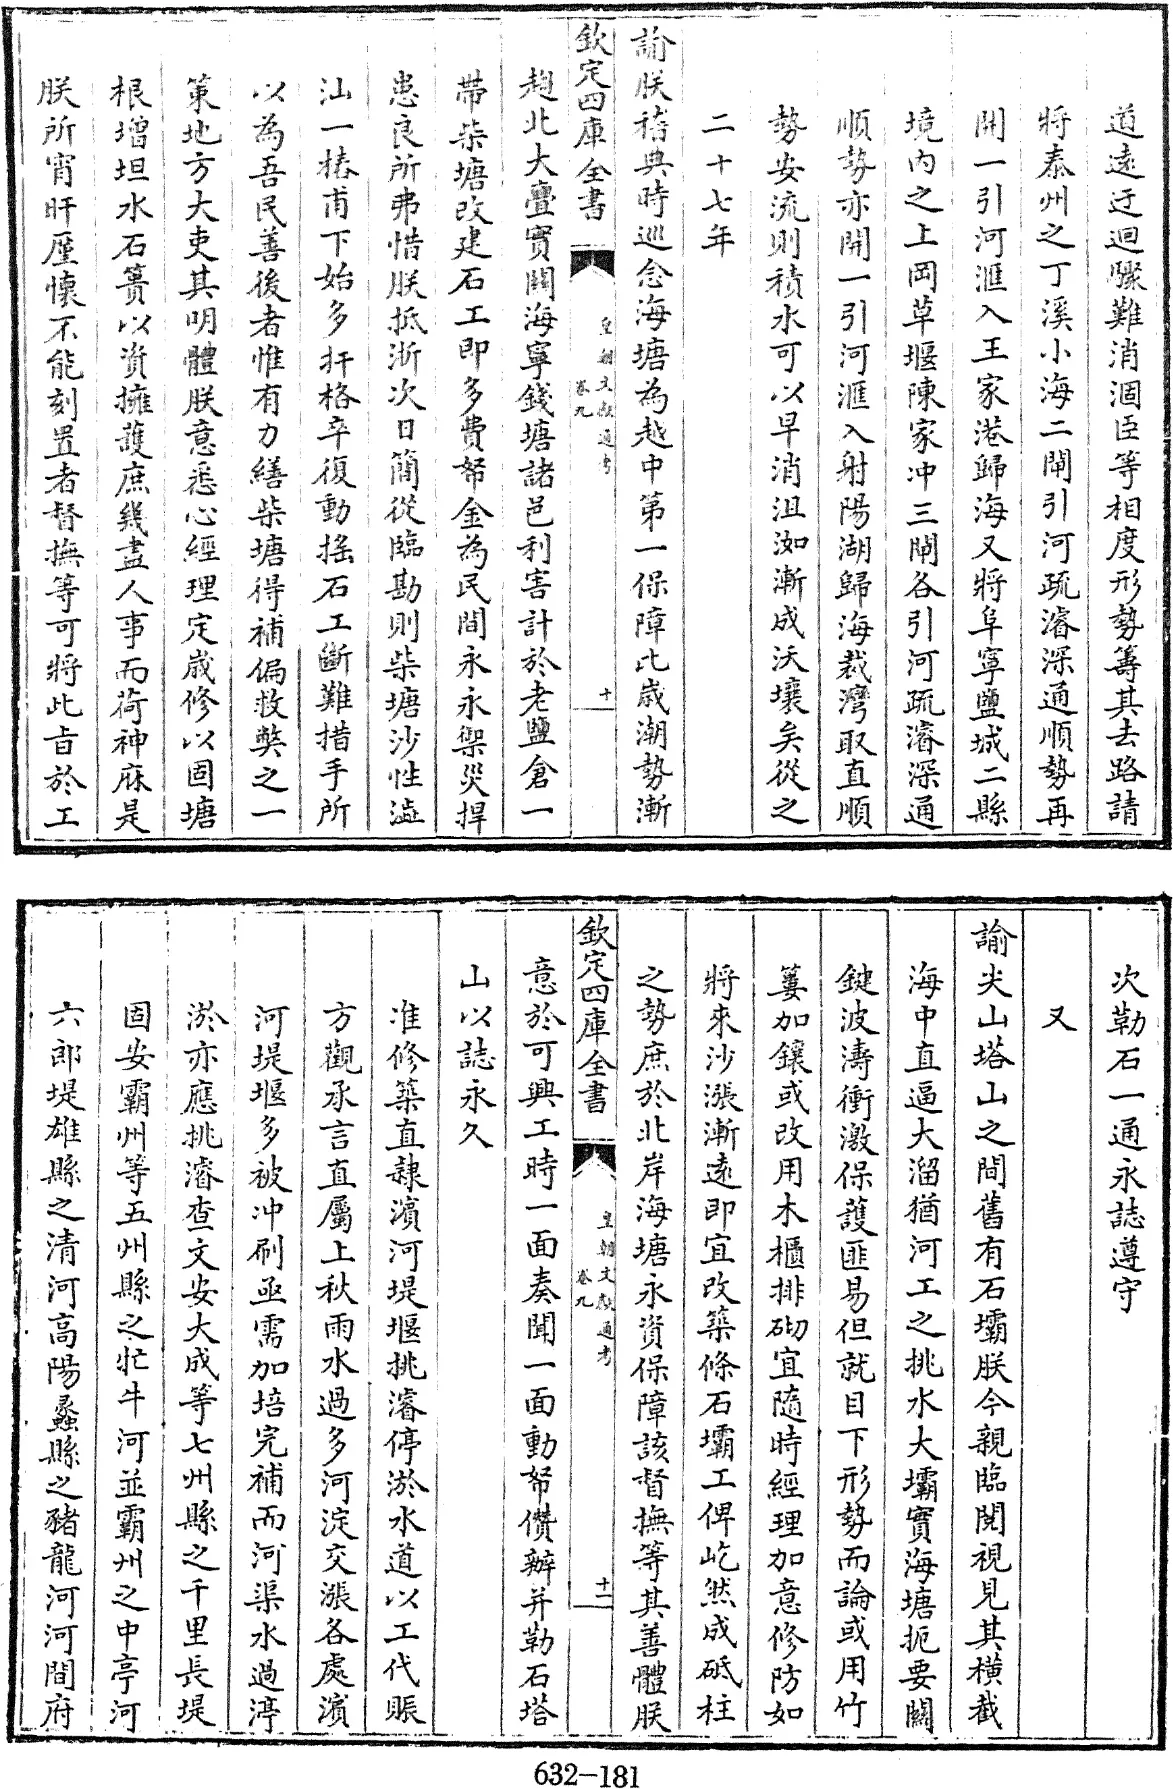 道遠迂迴驟難消涸臣等相度形勢籌其去路請
將泰州之丁溪小海二閘引河疏濬深通順勢再
開一引河滙入王家港歸海又將阜寧鹽城二縣
境内之上岡草堰陳家冲三閘各引河疏濬深通
順勢亦開一引河滙入射陽湖歸海裁灣取直順
勢安流則積水可以早消沮洳漸成沃壤矣從之
二十七年
諭朕稽典時巡念海塘為越中第一保障比歲潮勢漸
欽定四庫全書
皇朝文獻通考
卷九
十
趨北大亹實闗海寧錢塘諸邑利害計於老鹽倉一
帶柴塘改建石工即多費帑金為民間永永禦災捍
患良所弗惜朕抵浙次日簡從臨勘則柴塘沙性澁
汕一樁甫下始多扞格卒復動搖石工斷難措手所
以為吾民善後者惟有力繕柴塘得補偏救獘之一
策地方大吏其明體朕意悉心經理定歲修以固塘
根增坦水石簣以資擁護庶幾盡人事而荷神庥是
朕所宵旰厪懷不能刻置者督撫等可將此旨於工
次勒石一通永誌遵守
又
諭尖山塔山之間舊有石壩朕今親臨閱視見其橫截
海中直逼大溜猶河工之挑水大壩實海塘扼要闗
鍵波濤衝激保護匪易但就目下形勢而論或用竹
簍加鑲或改用木櫃排砌宜隨時經理加意修防如
將來沙漲漸遠即宜改築條石壩工俾屹然成砥柱
之勢庶於北岸海塘永資保障該督撫等其善體朕
欽定四庫全書
皇朝文獻通考
卷九
十一
意於可興工時一面奏聞一面動帑儹辦并勒石塔
山以誌永久
准修築直隸濱河堤堰挑濬停淤水道以工代賑
方觀承言直屬上秋雨水過多河淀交漲各處濱
河堤堰多被冲刷亟需加培完補而河渠水過渟
淤亦應挑濬查文安大成等七州縣之千里長堤
固安霸州等五州縣之牤牛河並霸州之中亭河
六郎堤雄縣之清河高陽蠡縣之豬龍河河間府
632-181